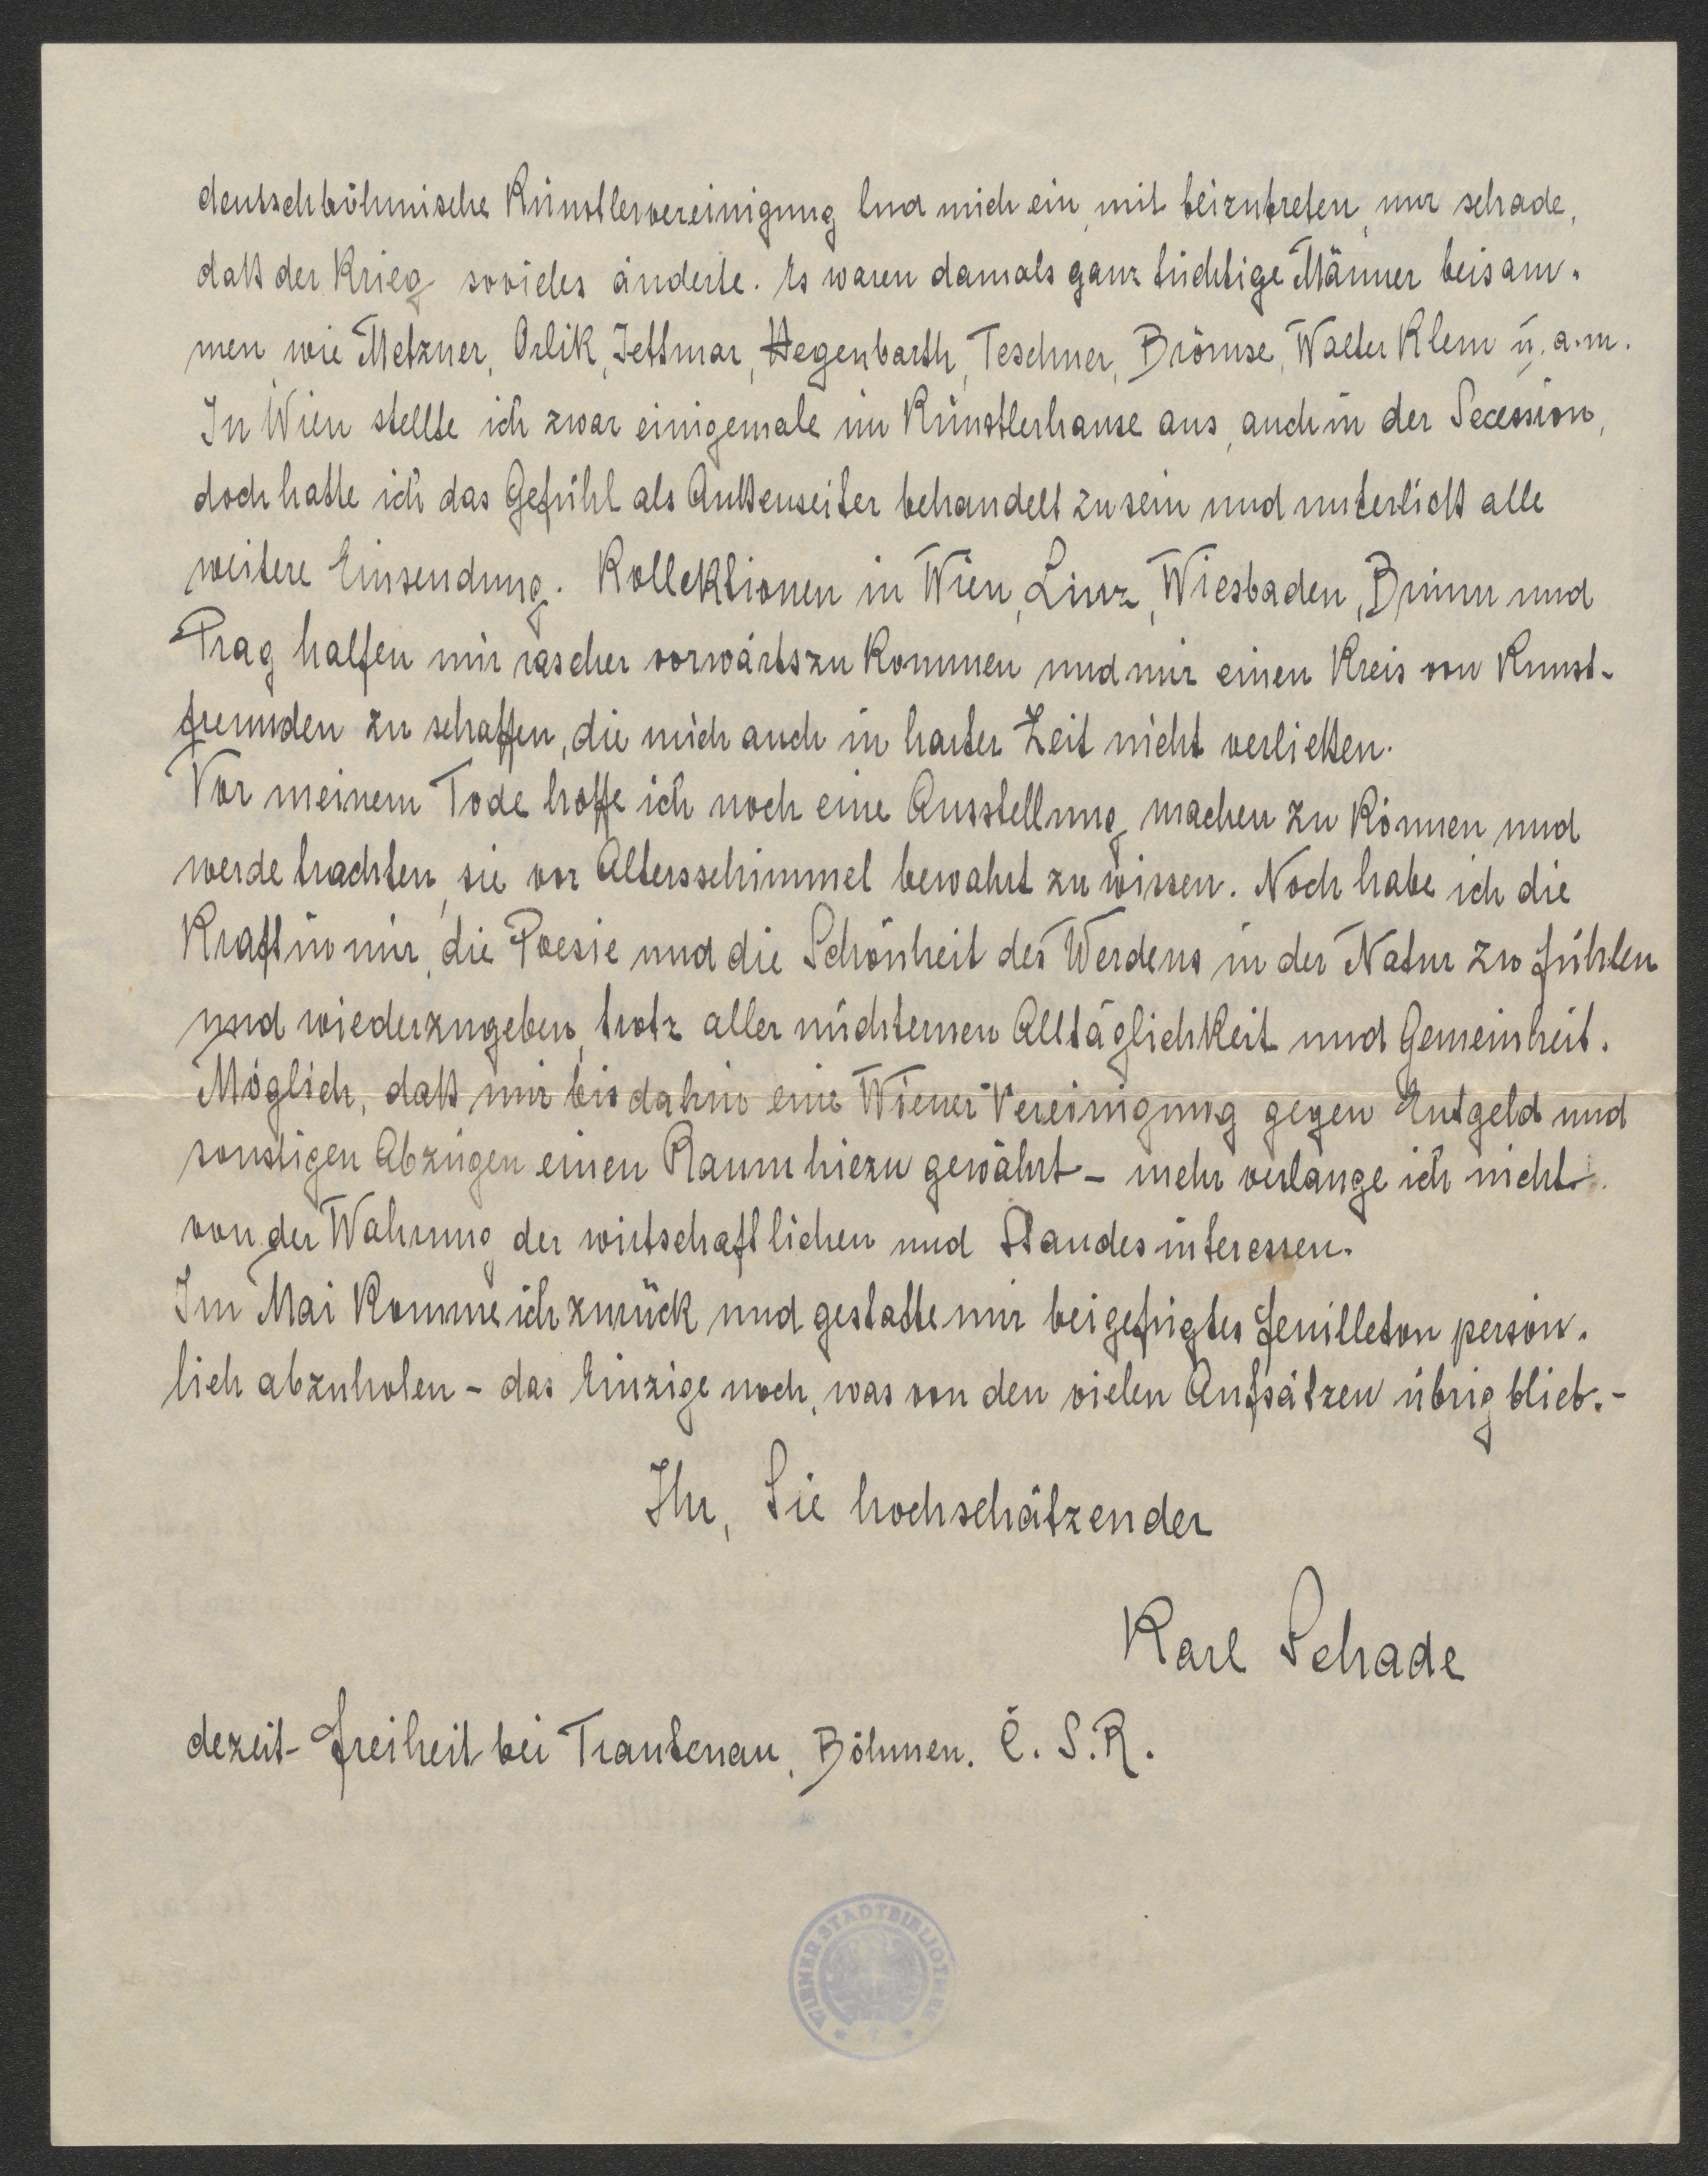 deutschböhmische Künstlervereinigung lud mich ein, mit beizutreten, nur schade,
daß der Krieg sovieles änderte. Es waren damals ganz tüchtige Männer beisam-
men wie Metzner, Orlik, Jettmar, Hegenbarth, Teschner, Brömse, Walter Klem u. a. m.
In Wien stellte ich zwar einigemale im Künstlerhause aus, auch in der Secession,
doch hatte ich das Gefühl als Außenseiter behandelt zu sein und unterließ alle
weitere Einsendung. Kollektionen in Wien, Linz, Wiesbaden, Brünn und
Prag halfen mir rascher vorwärtszukommen und mir einen Kreis von Kunst-
freunden zu schaffen, die mich auch in harter Zeit nicht verließen.
Vor meinem Tode hoffe ich noch eine Ausstellung machen zu können und
werde trachten, sie vor Altersschimmel bewahrt zu wissen. Noch habe ich die
Kraft in mir, die Poesie und die Schönheit des Werdens in der Natur zu fühlen
und wiederzugeben, trotz aller nüchternen Alltäglichkeit und Gemeinheit.
Möglich, daß mir bis dahin eine Wiener Vereinigung gegen Entgeld und
sonstigen Abzügen einen Raum hiezu gewährt – mehr verlange ich nicht
von der Wahrung der wirtschaftlichen und Standesinteressen.
Im Mai komme ich zurück und gestatte mir beigefügtes Feuilleton persön-
lich abzuholen – das Einzige noch, was von den vielen Aufsätzen übrig blieb. –
Ihr, Sie hochschätzender
Karl Schade
dezeit – Freiheit bei Trautenau, Böhmen. Č. S. R.
WIENER STADTBIBLIOTHEK